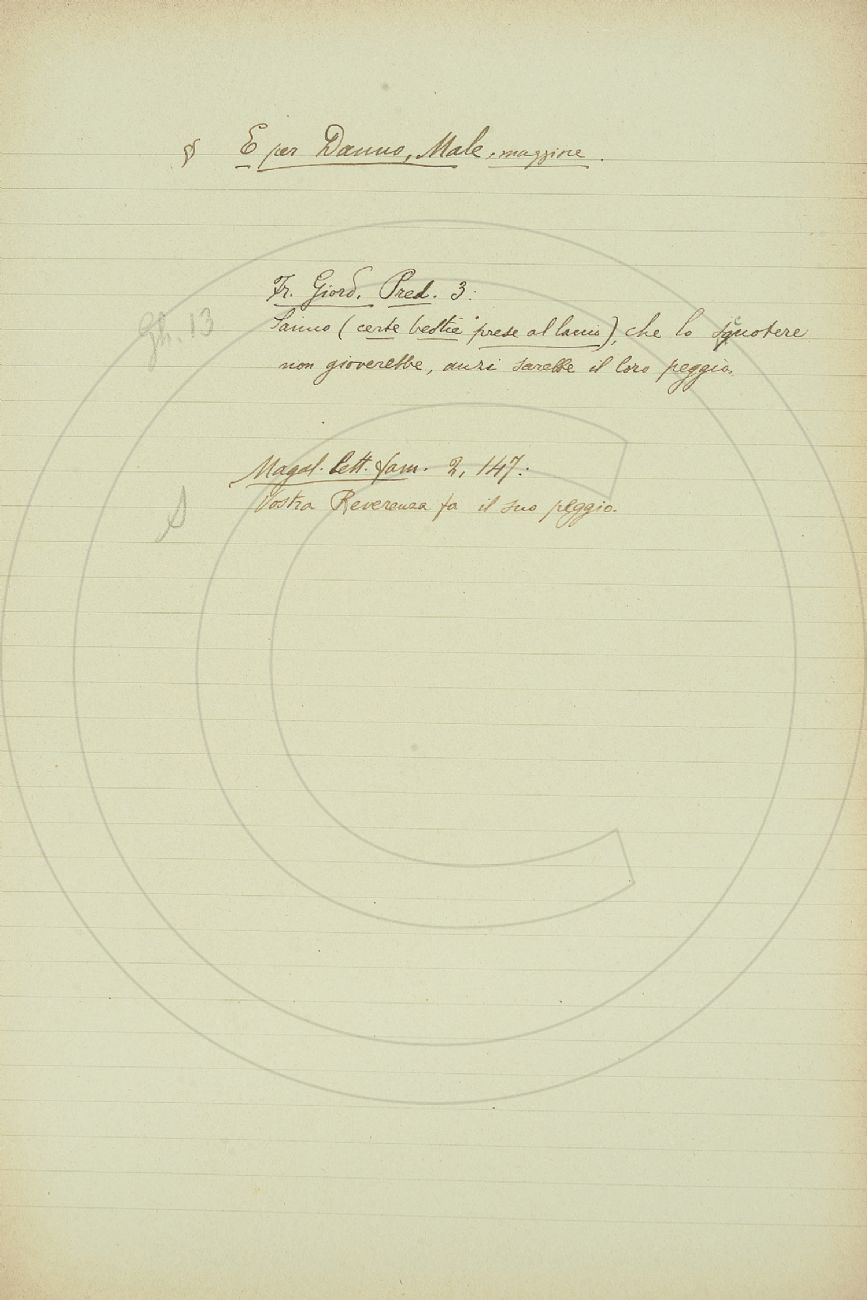 § E per Danno, Male, maggiore.
Fr. Giord. Pred. 3:
Gh. 13
Sanno (certe bestie prese al laccio), che lo squotere
non gioverebbe, anzi sarebbe il loro peggio.
Magal. Lett. fam. 2, 147:
S
Vostra Reverenza fa il suo peggio.